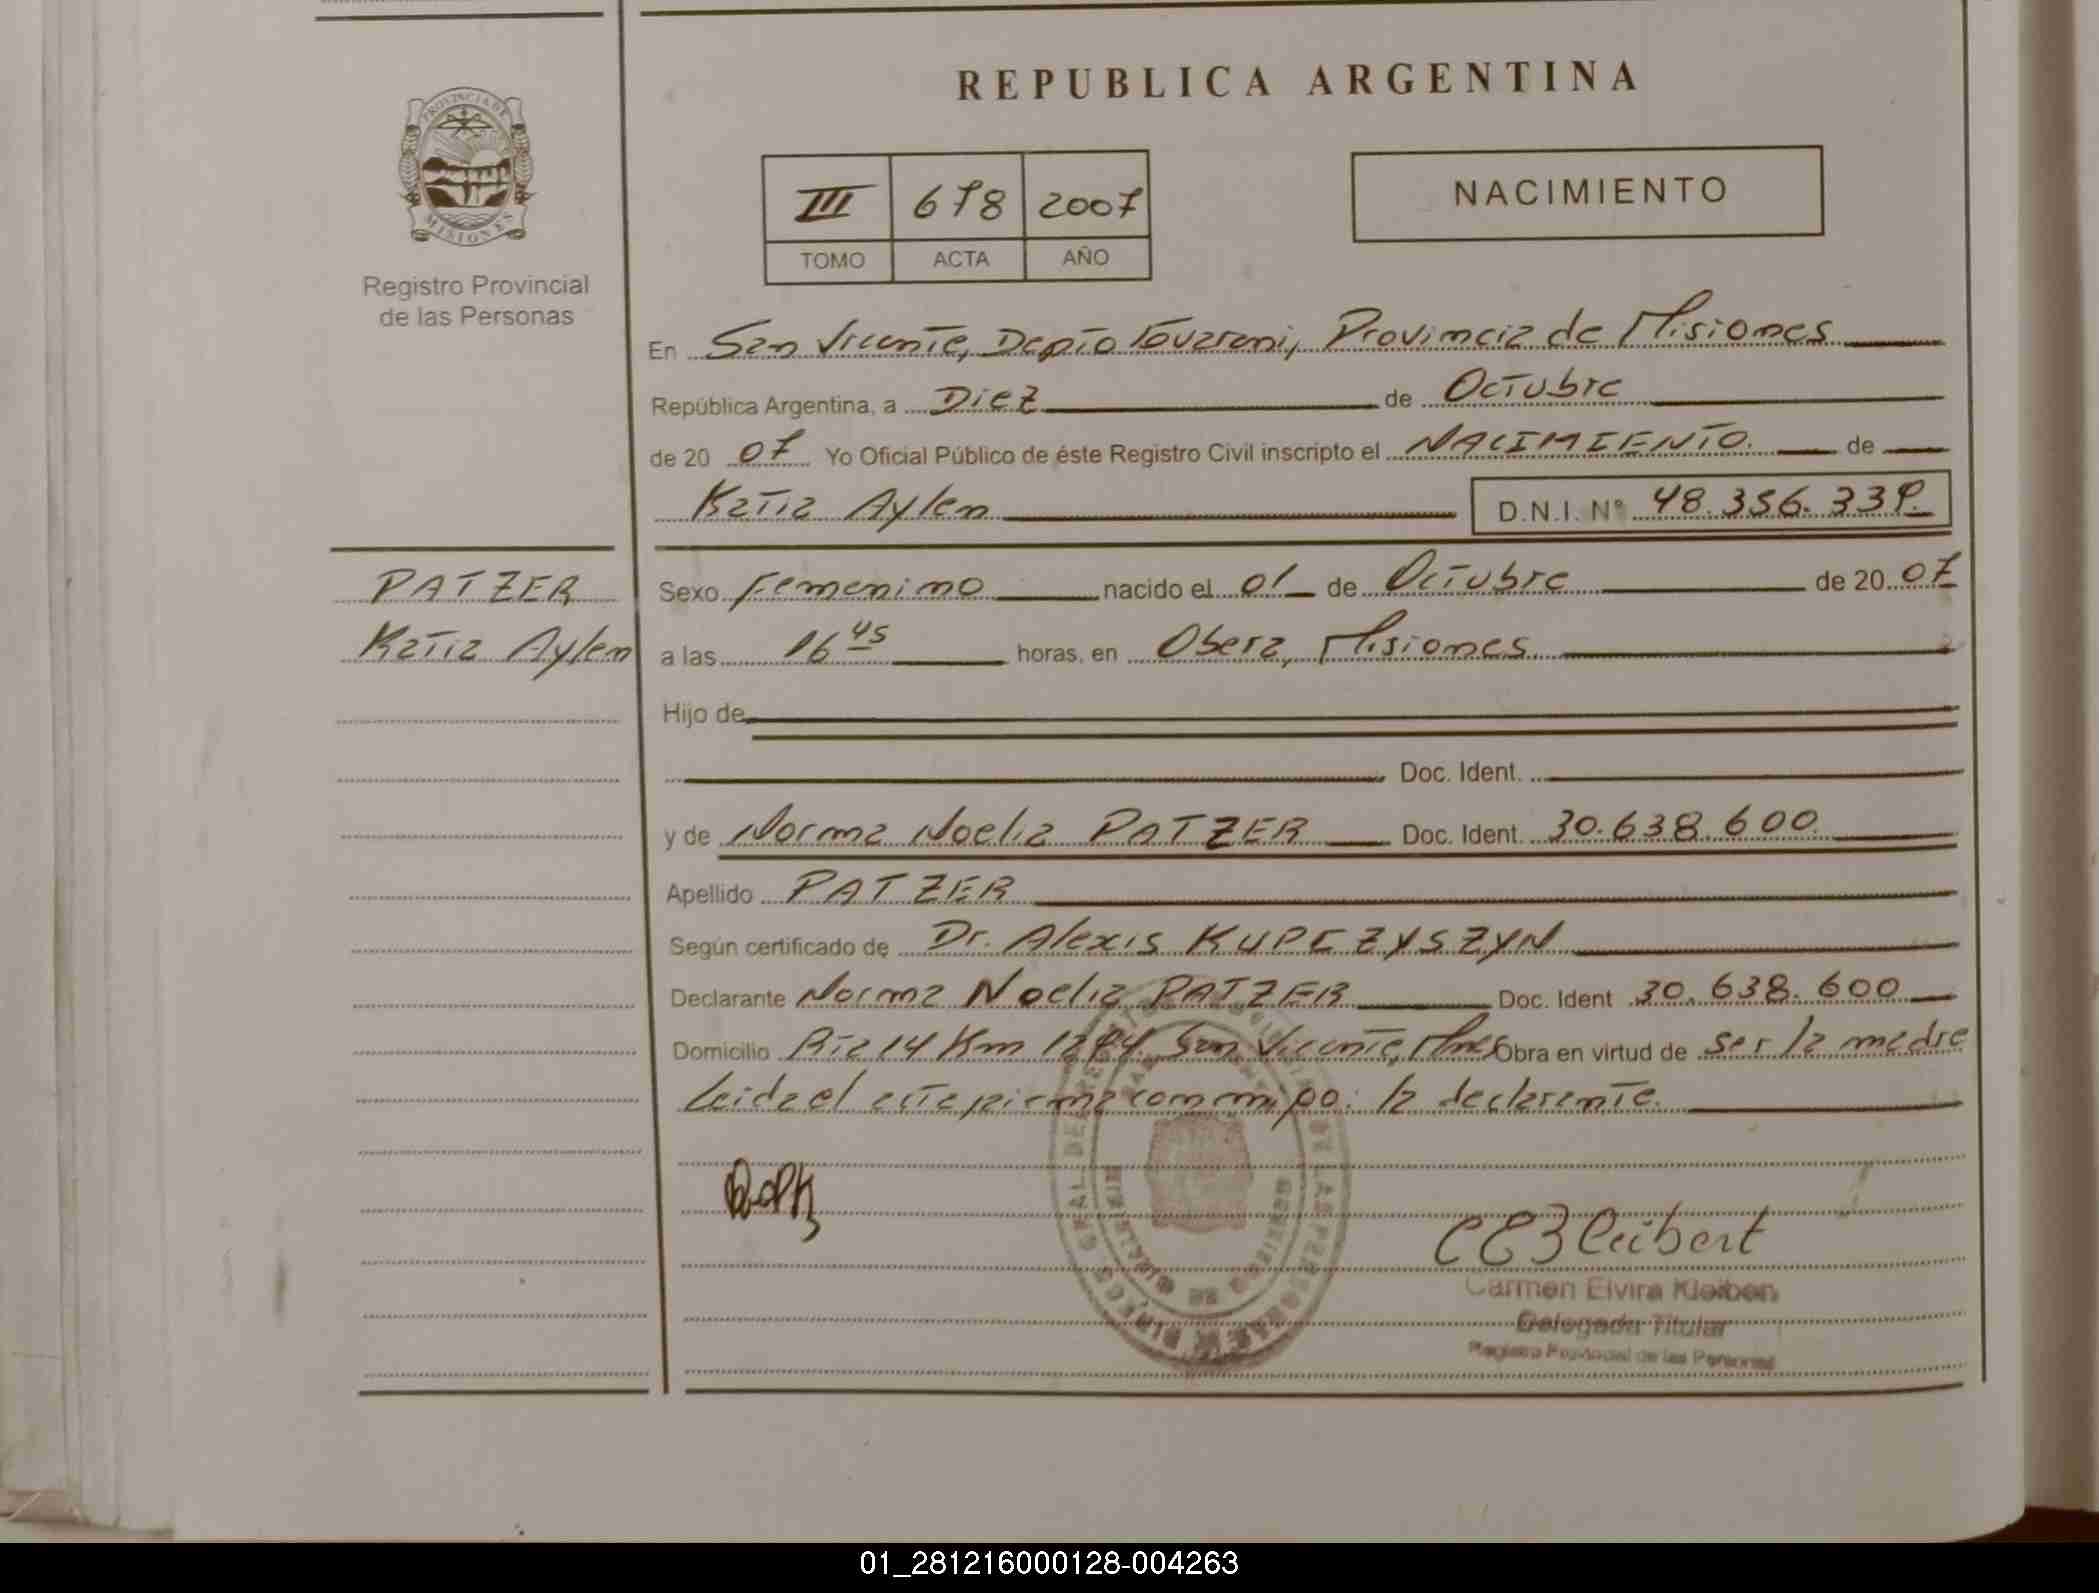 REPUBLICA ARGENTINA
PROVINCIA DE
MISIONES
Registro Provincial
de las Personas
III 678 2007
TOMO ACTA AÑO
NACIMIENTO
En San Vicente, Depto Guarani, Provincia de Misiones
República Argentina, a Diez de Octubre
de 20 07 Yo Oficial Público de éste Registro Civil inscripto el NACIMIENTO. de
Katia Aylen D.N.I. Nº 48.356.339.
PATZER
Katia Aylen
Sexo Femenino nacido el 01 de Octubre de 20 07
a las 16 45 horas, en Obera, Misiones
Hijo de
Doc. Ident.
y de Norma Noelia PATZER Doc. Ident. 30.638.600
Apellido PATZER
Según certificado de Dr. Alexis KUPCZYSZYN
Declarante Norma Noelia PATZER Doc. Ident 30.638.600
Domicilio Rta 14 Km San Vicente, Mnes Obra en virtud de ser la madre
Leida el acta firma conmigo: la declarante.
Carmen Elvira
Delegada Titular
Registro Provincial de las Personas
01_281216000128-004263